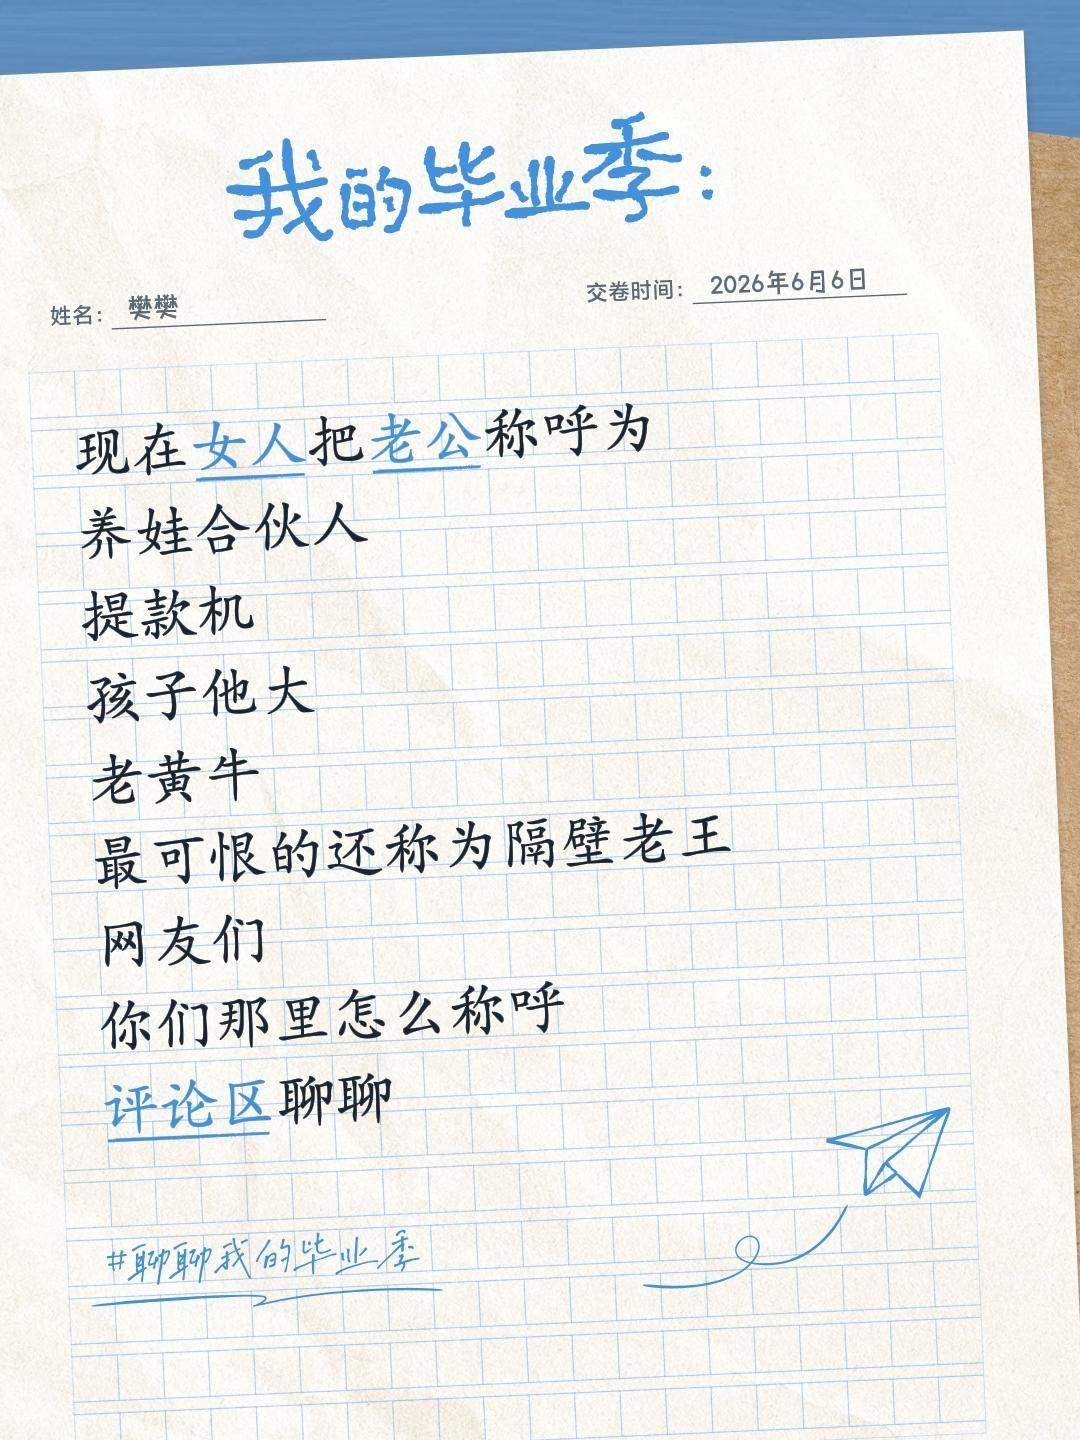 我的毕业季：
姓名： 樊樊
交卷时间： 2026年6月6日
现在女人把老公称呼为
养娃合伙人
提款机
孩子他大
老黄牛
最可恨的还称为隔壁老王
网友们
你们那里怎么称呼
评论区聊聊
#聊聊我的毕业季